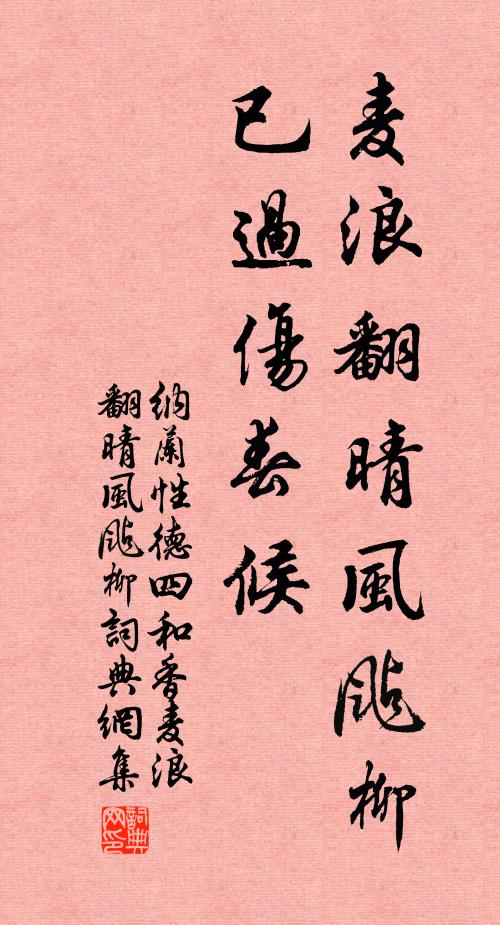 麦浪翻晴風颭柳
已過傷春候
納蘭性德四和香麦浪
翻晴風颭柳詞典網集
詞典网印